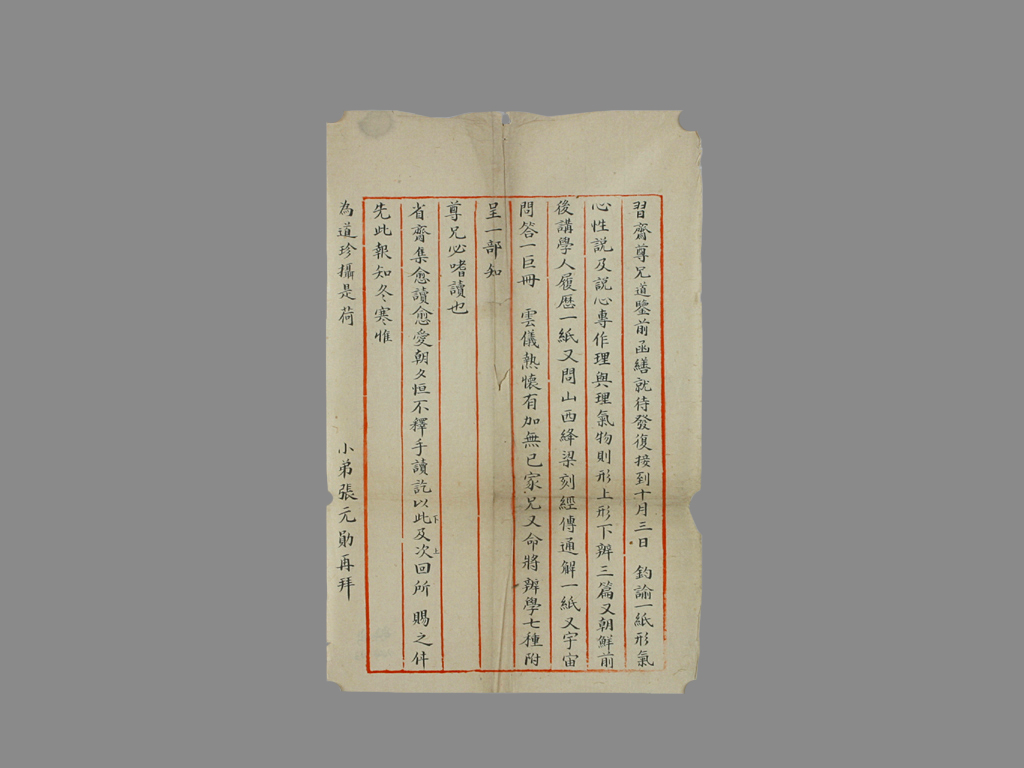 習齋尊兄道鑒前函繕就待發復接到十月三日　鈞諭一紙形氣
心性說及說心專作理與理氣物則形上形下辨三篇又朝鮮前
後講學人履歷一紙又問山西絳梁刻經傳通解一紙又宇宙
問答一巨冊　雲儀熱懷有加無已家兄又命將辨學七種附
呈一部知
尊兄必嗜讀也
省齋集愈讀愈愛朝夕恒不釋手讀訖以此下及次上回所　賜之件
先此報知冬寒惟
為道珍攝是荷
小弟張元勛再拜